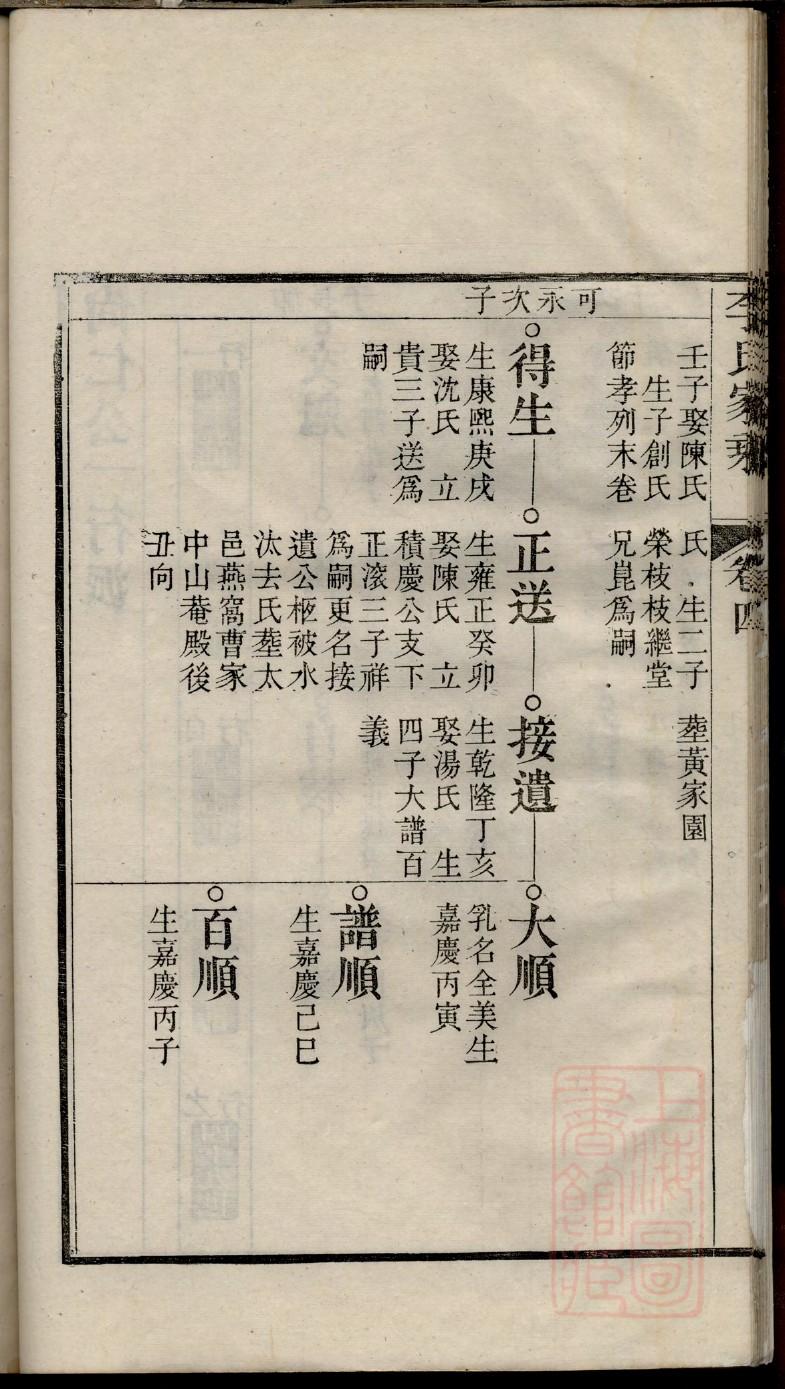 李氏家乘
卷四
壬子娶陳氏
生子創氏
節孝列末卷
氏生二子
榮枝枝繼堂
兄崑為嗣
塟黃家園
可永次子
得生
生康熙庚戌
娶沈氏 立
貴三子送為
嗣
正送
生雍正癸卯
娶陳氏 立
積慶公支下
正滚三子祥
為嗣更名接
遺公柩被水
汰去氏塟太
邑燕窩曹家
中山菴殿後
丑向
接遺
生乾隆丁亥
娶湯氏 生
四子大譜百
義
大順
乳名全美生
嘉慶丙寅
譜順
生嘉慶己巳
百順
生嘉慶丙子
上海圖
書館藏